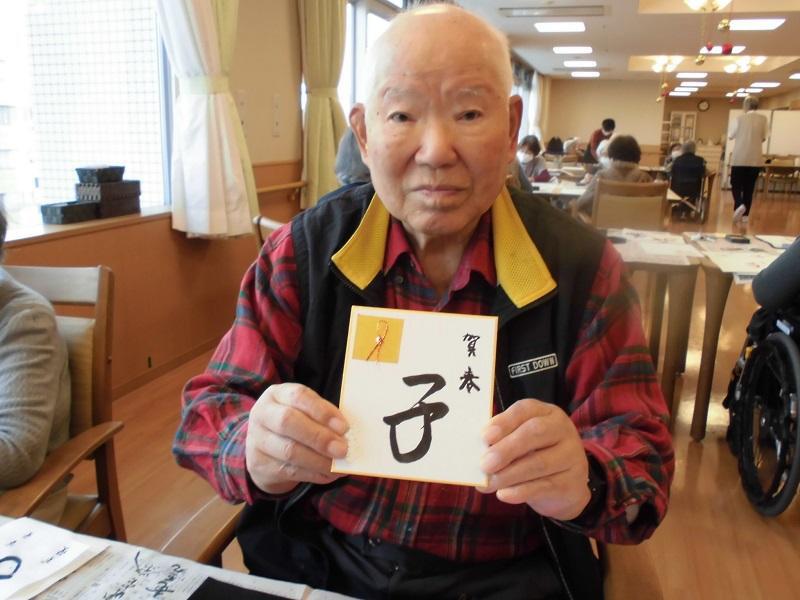 賀春
子
FIRST DOWN